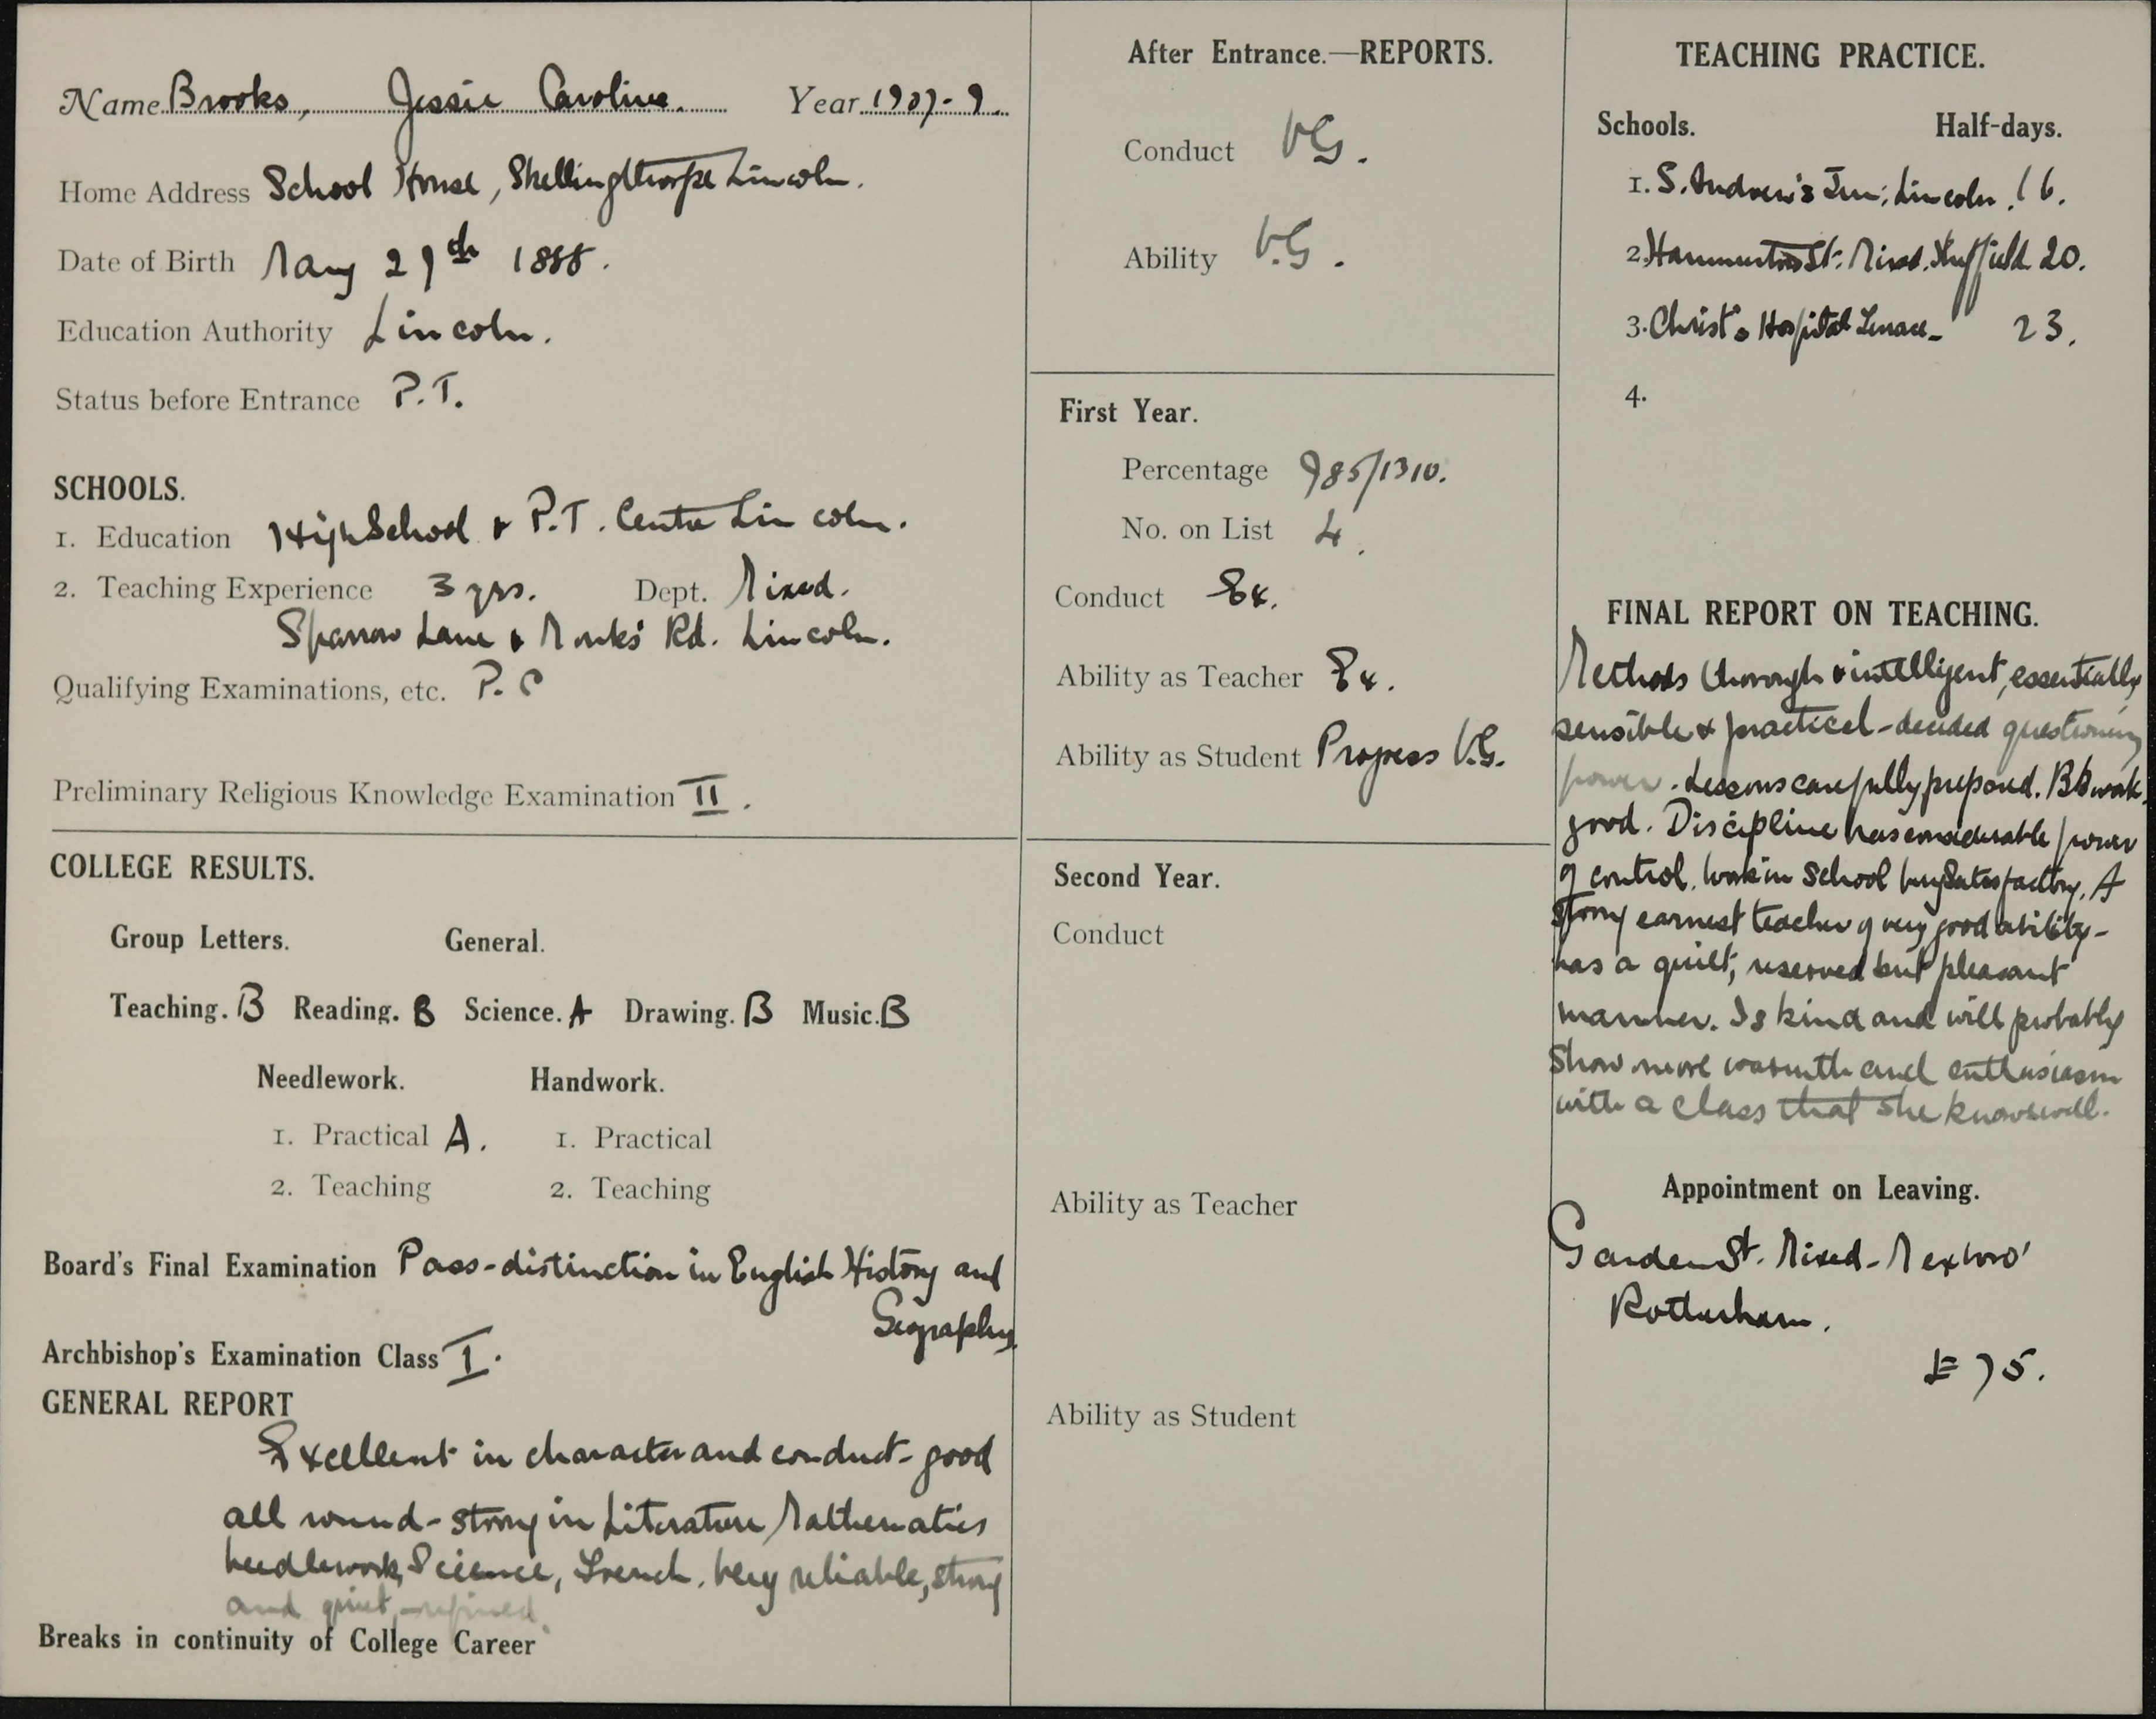 Name Brooks, Jessie Caroline. Year 1907-9.
Home Address School House, Skellingthorpe Lincoln.
Date of Birth May 29th 1888.
Education Authority Lincoln.
Status before Entrance P.T.
SCHOOLS.
1. Education High School & P.T. Centre Lincoln.
2. Teaching Experience 3 yrs. Dept. Mixed.
Sparrow Lane & Monks' Rd. Lincoln.
Qualifying Examinations, etc. P.C
Preliminary Religious Knowledge Examination II.
COLLEGE RESULTS.
Group Letters. General.
Teaching. B Reading. B Science. A Drawing. B Music. B
Needlework. Handwork.
1. Practical A. 1. Practical
2. Teaching 2. Teaching
Board's Final Examination Pass-distinction in English History and
Geography
Archbishop's Examination Class I.
GENERAL REPORT
Excellent in character and conduct- good
all round- strong in Literature Mathematics
Needlework, Science, French. Very reliable, strong
and quiet, refined.
Breaks in continuity of College Career
After Entrance.—REPORTS.
Conduct VG.
Ability V.G.
First Year.
Percentage 985/1310.
No. on List 4.
Conduct Ex.
Ability as Teacher Ex.
Ability as Student Progress V.G.
Second Year.
Conduct
Ability as Teacher
Ability as Student
TEACHING PRACTICE.
Schools. Half-days.
1. S. Andrew's Jun: Lincoln. 16.
2. Hammerton St: Mixed. Sheffield 20.
3. Christ's Hospital Terrace- 23.
4.
FINAL REPORT ON TEACHING.
Methods thorough & intelligent, essentially
sensible & practical- decided questioning
power. Lessons carefully prepared. Bb work
good. Discipline has considerable power
of control. Work in School very Satisfactory. A
strong earnest teacher of very good ability-
has a quiet, reserved but pleasant
manner. Is kind and will probably
show more warmth and enthusiasm
with a class that she knows well.
Appointment on Leaving.
Garden St. Mixed- Mexboro'
Rotherham.
£75.